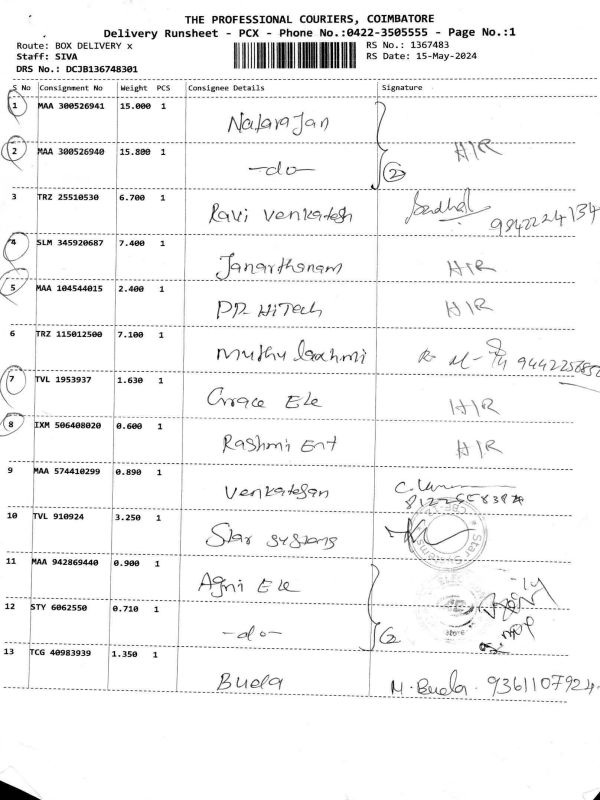 THE PROFESSIONAL COURIERS, COIMBATORE
Delivery Runsheet - PCX - Phone No.:0422-3505555 - Page No.:1
Route: BOX DELIVERY x RS No.: 1367483
Staff: SIVA RS Date: 15-May-2024
DRS No.: DCJB136748301
S No Consignment No Weight PCS Consignee Details Signature
1 MAA 300526941 15.000 1 Natarajan
2 MAA 300526940 15.800 1 -do- 2 H/R
3 TRZ 25510530 6.700 1 Ravi Venkatesh 9842224134
4 SLM 345920687 7.400 1 Janarthanam H/R
5 MAA 104544015 2.400 1 PR HiTech H/R
6 TRZ 115012500 7.100 1 Muthu laxhmi
7 TVL 1953937 1.630 1 Grace Ele H/R
8 IXM 506408020 0.600 1 Rashmi Ent H/R
9 MAA 574410299 0.890 1 Venkatesan
10 TVL 910924 3.250 1 Star systems
11 MAA 942869440 0.900 1 Agni Ele
12 STY 6062550 0.710 1 -do- 2
13 TCG 40983939 1.350 1 Buela M. Buela. 9361107924